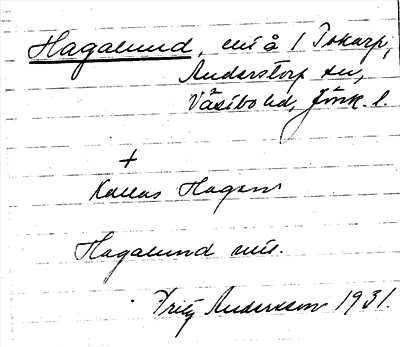 Hagalund, mt å 1 Tokarp,
Anderstorp sn,
Västbo hd, Jönk. l.
+
Kallas Hagen
Hagalund mt.
Fritz Andersson 1931.